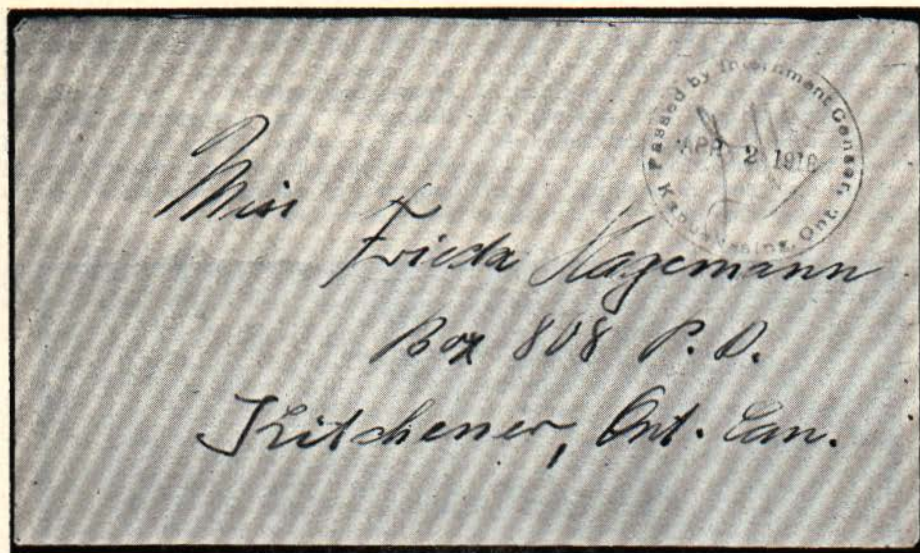 Passed by Internment Censor,
Kapuskasing, Ont.
APR 2 191
Miss
Frieda Hagemann
Box 808 P. O.
Kitchener, Ont. Can.